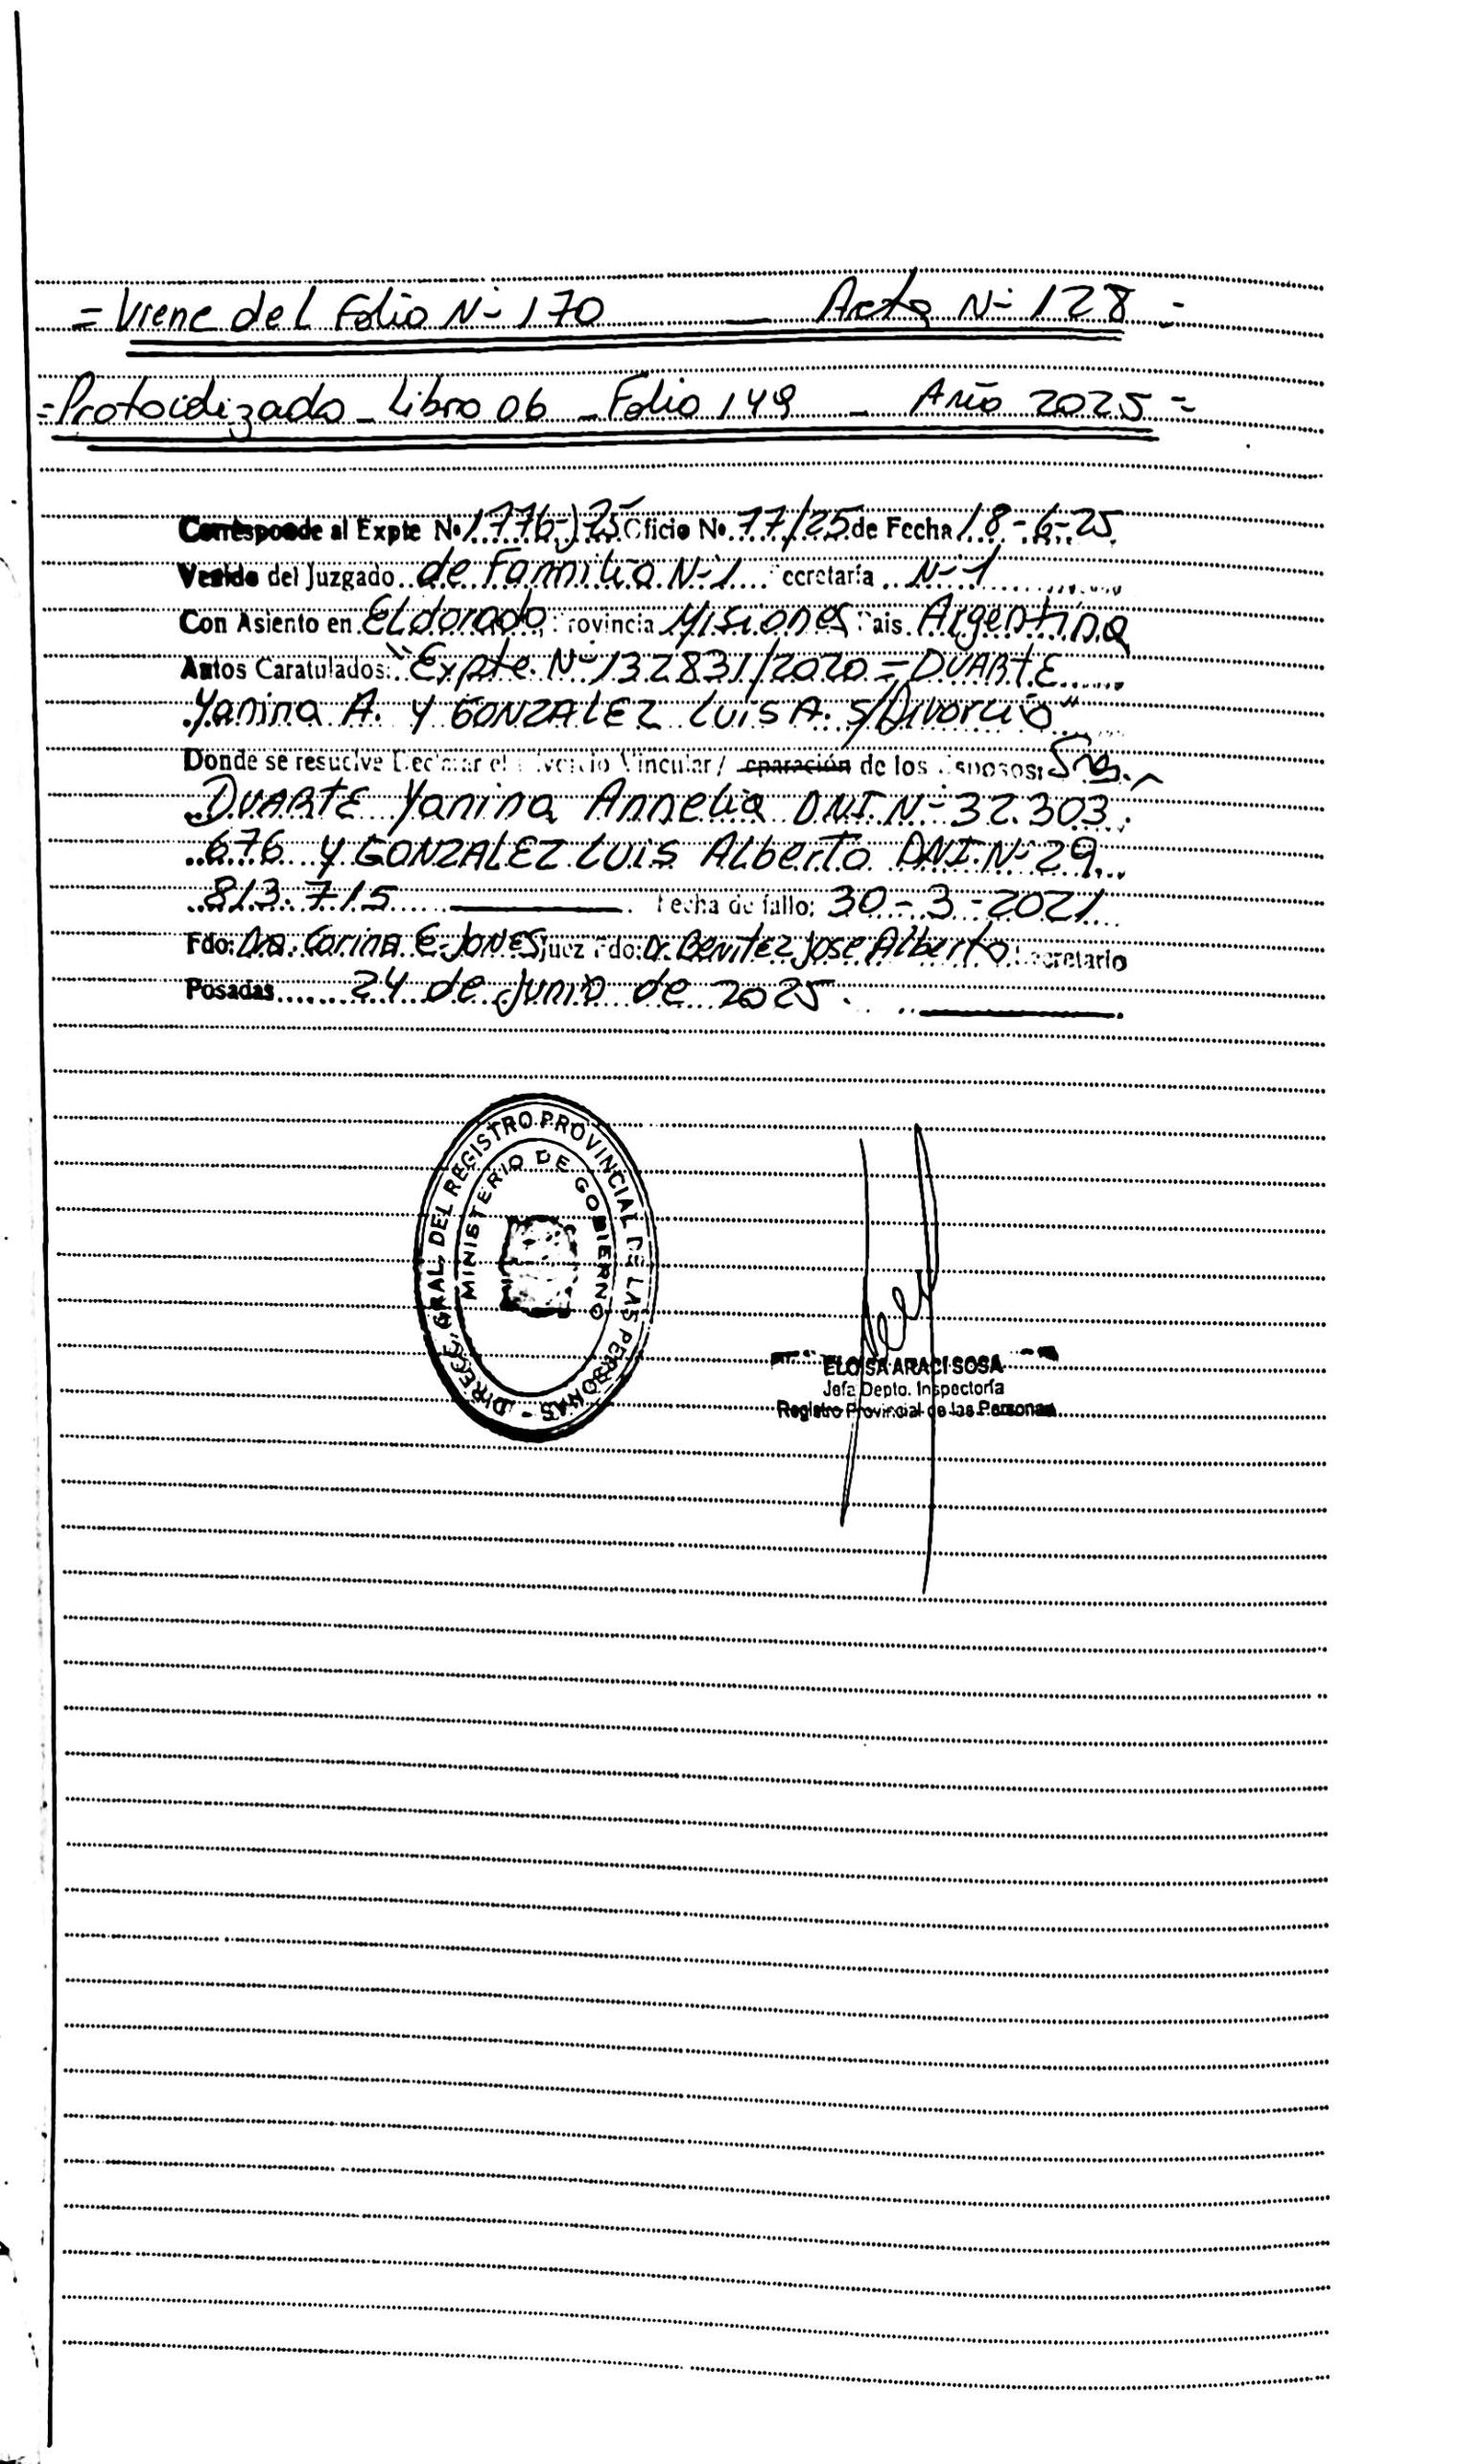 = Viene del Folio Nº 170 — Acta Nº 128 =
= Protocolizado - Libro 06 - Folio 149 - Año 2025 =
Corresponde al Expte Nº 1776-J-25 Oficio Nº 77/25 de Fecha 18-6-25
Venido del Juzgado de Familia Nº 1 Secretaría Nº 1
Con Asiento en Eldorado, Provincia Misiones Pais Argentina
Autos Caratulados: "Expte. Nº 132831/2020 = DUARTE
Yanina A. y GONZALEZ LUIS A. s/Divorcio"
Donde se resuelve Declarar el Divorcio Vincular / Separación de los Esposos:
DUARTE Yanina Annelia DNI. Nº 32.303.
676 y GONZALEZ LUIS Alberto DNI. Nº 29.
813.715 Fecha de fallo: 30-3-2021
Fdo: Dra. Carina E. JONES Juez Fdo: Dr. Benitez Jose Alberto Secretario
Posadas 24 de Junio de 2025.
DIREC. GRAL. DEL REGISTRO PROVINCIAL DE LAS PERSONAS -
MINISTERIO DE GOBIERNO
ELOISA ARACI SOSA
Jefa Depto. Inspectoría
Registro Provincial de las Personas